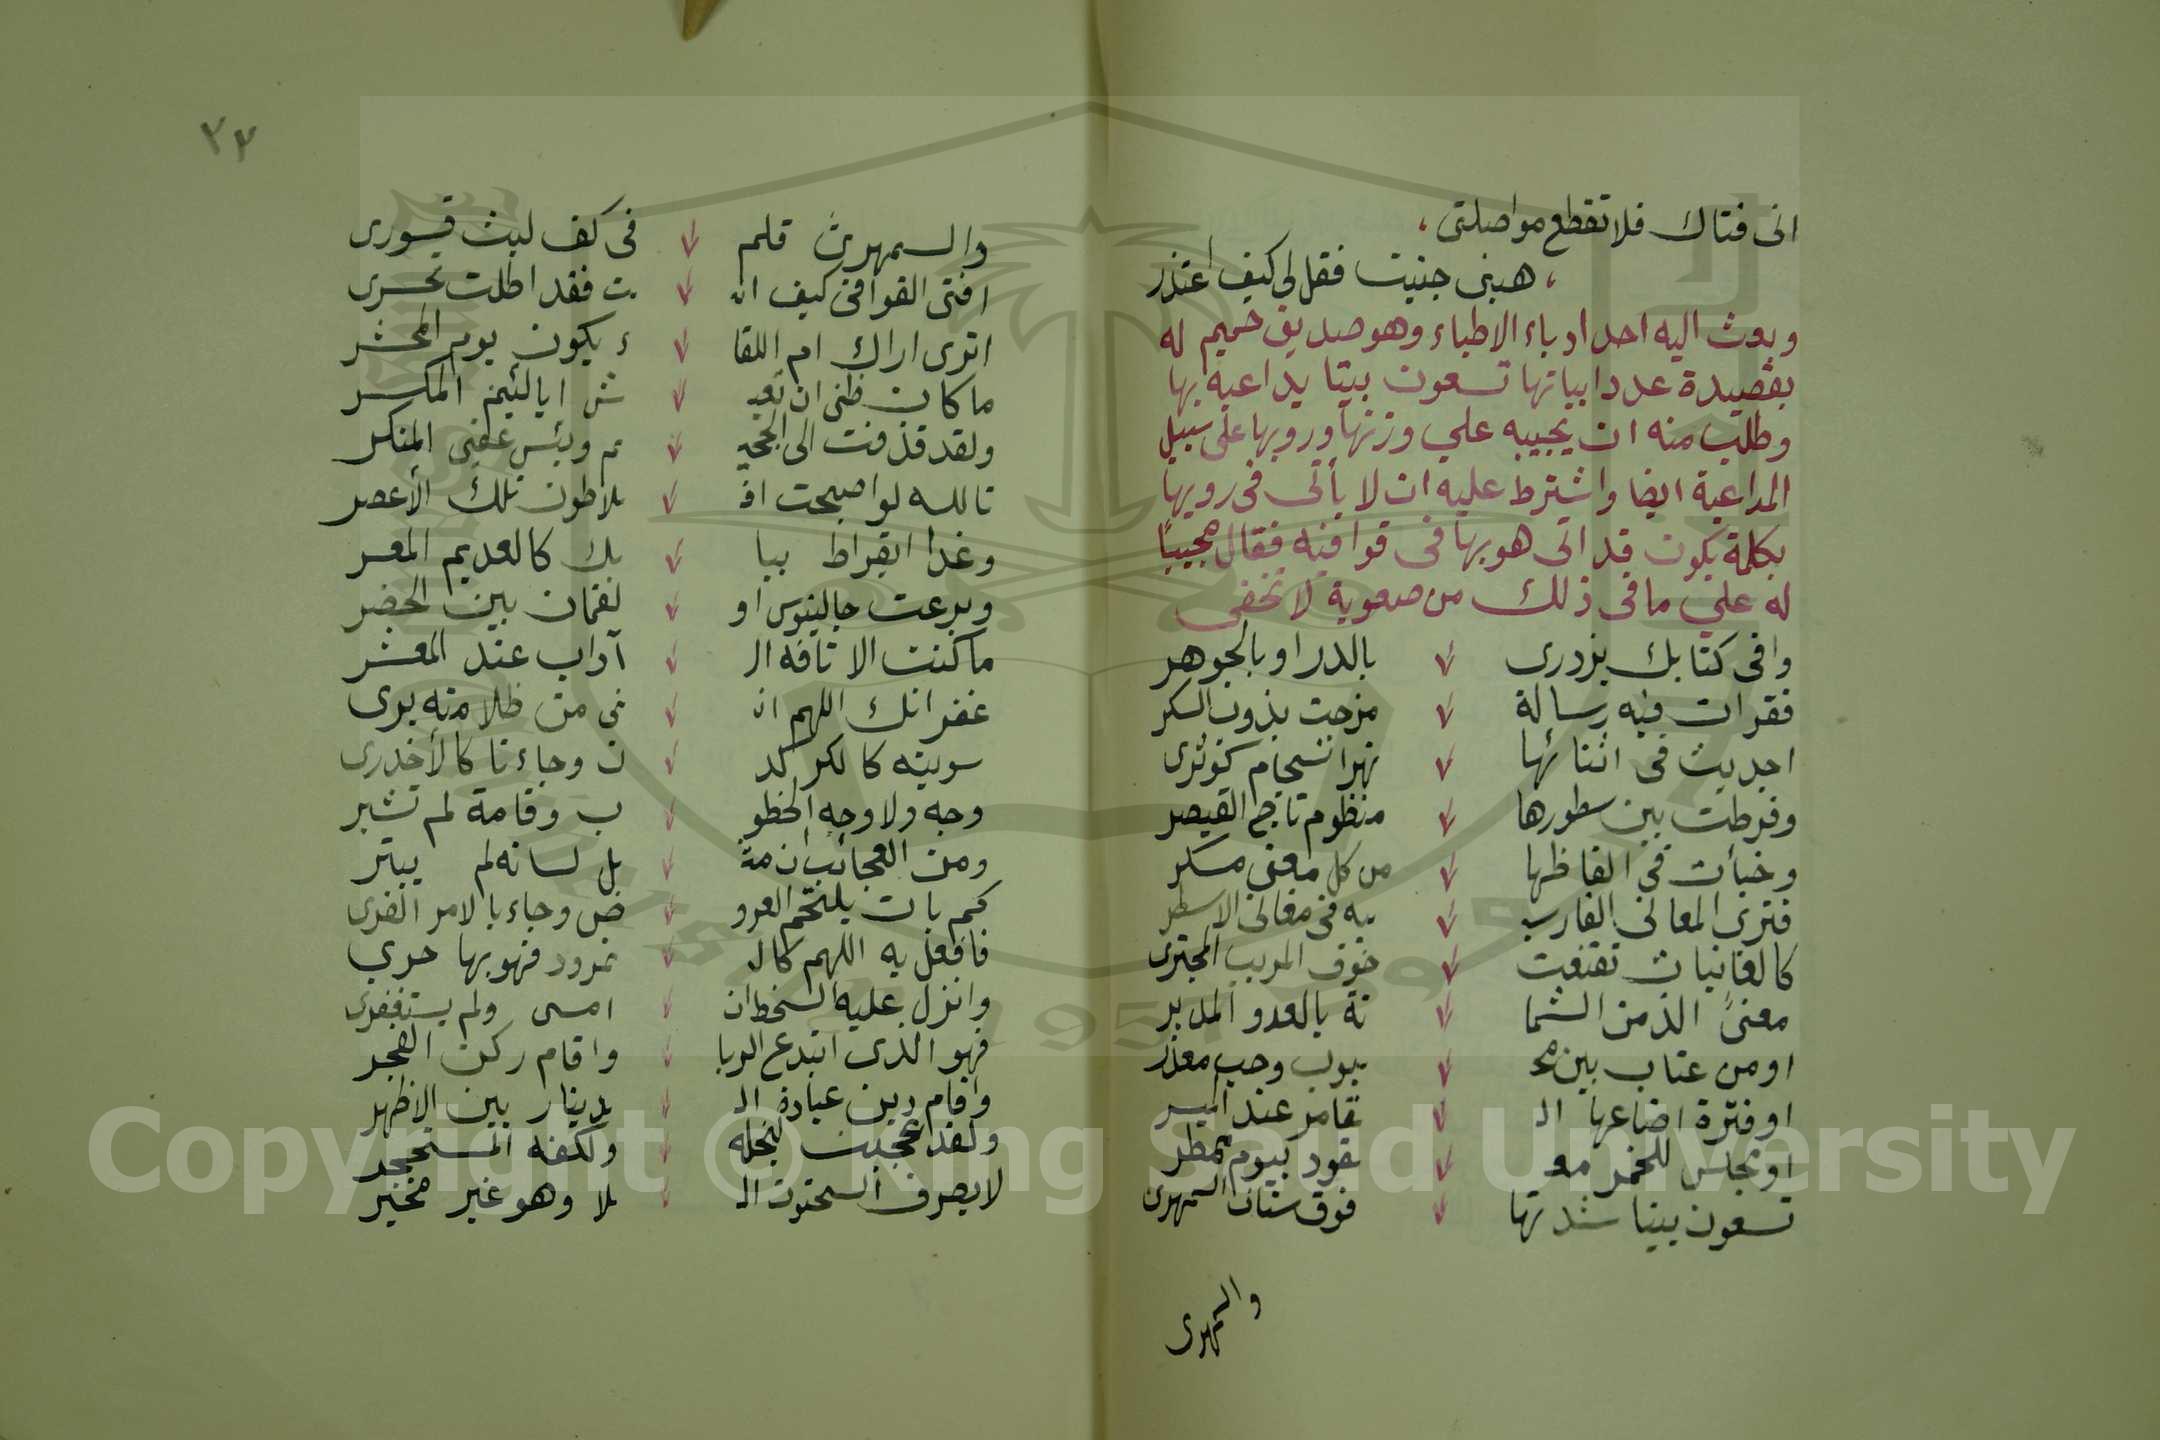 انى فتاك فلا تقطع مواصلتى
هبنى جنيت فقل لى كيف اعتذر
وبعث اليه احد ادباء الاطباء وهو صديق حميم له
بقصيدة عدد ابياتها تسعون بيتا يداعبه بها
وطلب منه ان يجيبه على وزنها ورويها على سبيل
المداعبة ايضا واشترط عليه ان لا يأتى فى رويها
بكلمة يكون قد اتى هو بها فى قوافيه فقال مجيبًا
له على ما فى ذلك من صعوبة لا تخفى
وافى كتابك يزدرى بالدر او بالجوهر
فقرات فيه رسالة مزجت بذوب السكر
اجريت فى اثنائها نهر انسجام كوثرى
وفرطت بين سطورها منظوم تاج القيصر
وخبأت فى الفاظها من كل معنى مسكر
فترى المعانى الغاربـ ـيه فى مغانى الاسطر
كالغانيات تقنعت خوف المريب المجترى
معنىً الذ من الشما تة بالعدو المدبر
او من عتاب بين محـ ـبوب وحب معذر
او فترة اضاعها الـ ـقامر عند الميسر
او مجلس للخمر معـ ـقود بيوم ممطر
تسعون بيتا شدتها فوق سنان السمهرى
والسمهرى
٢٧
والسمهرىُّ قلم فى كف ليث قسورى
افتى القوافى كيف انـ ـت فقد اطلت تحسرى
اترى اراك ام اللقا ء يكون يوم المحشر
ما كان ظنى ان تعيـ ـش ايا لئيم المكسر
ولقد قذفت الى الجحيـ ـم وبئس عقبى المنكر
تالله لو اصبحت افـ ـلاطون تلك الأعصر
وغدا ابقراط ببا بك كالعديم المعسر
وبرعت جالينوس او لقمان بين الحضر
ما كنت الا تافه الـ آداب عند المعشر
غفرانك اللهم انـ ـى من ظلامته برى
سويته كالكركد ن وجاءنا كالأخدرى
وجه ولا وجه الخطو ب وقامة لم تشبر
ومن العجائب ان مثـ ـل لسانه لم يبتر
كم بات يلتحم العرو ض وجاء بالامر الفرى
فافعل به اللهم كالـ ـنمرود فهو بها حرى
وانزل عليه السخط ان امسى ولم يستغفرى
فهو الذى ابتدع الربا واقام ركن الفجر
واقام دين عبادة الـ ـدينار بين الاظهر
ولقد عجبت لبخله ولكفه المستحجر
لا يصرف السحتوت الـ ـلا وهو غير مخير
Copyright © King Saud University